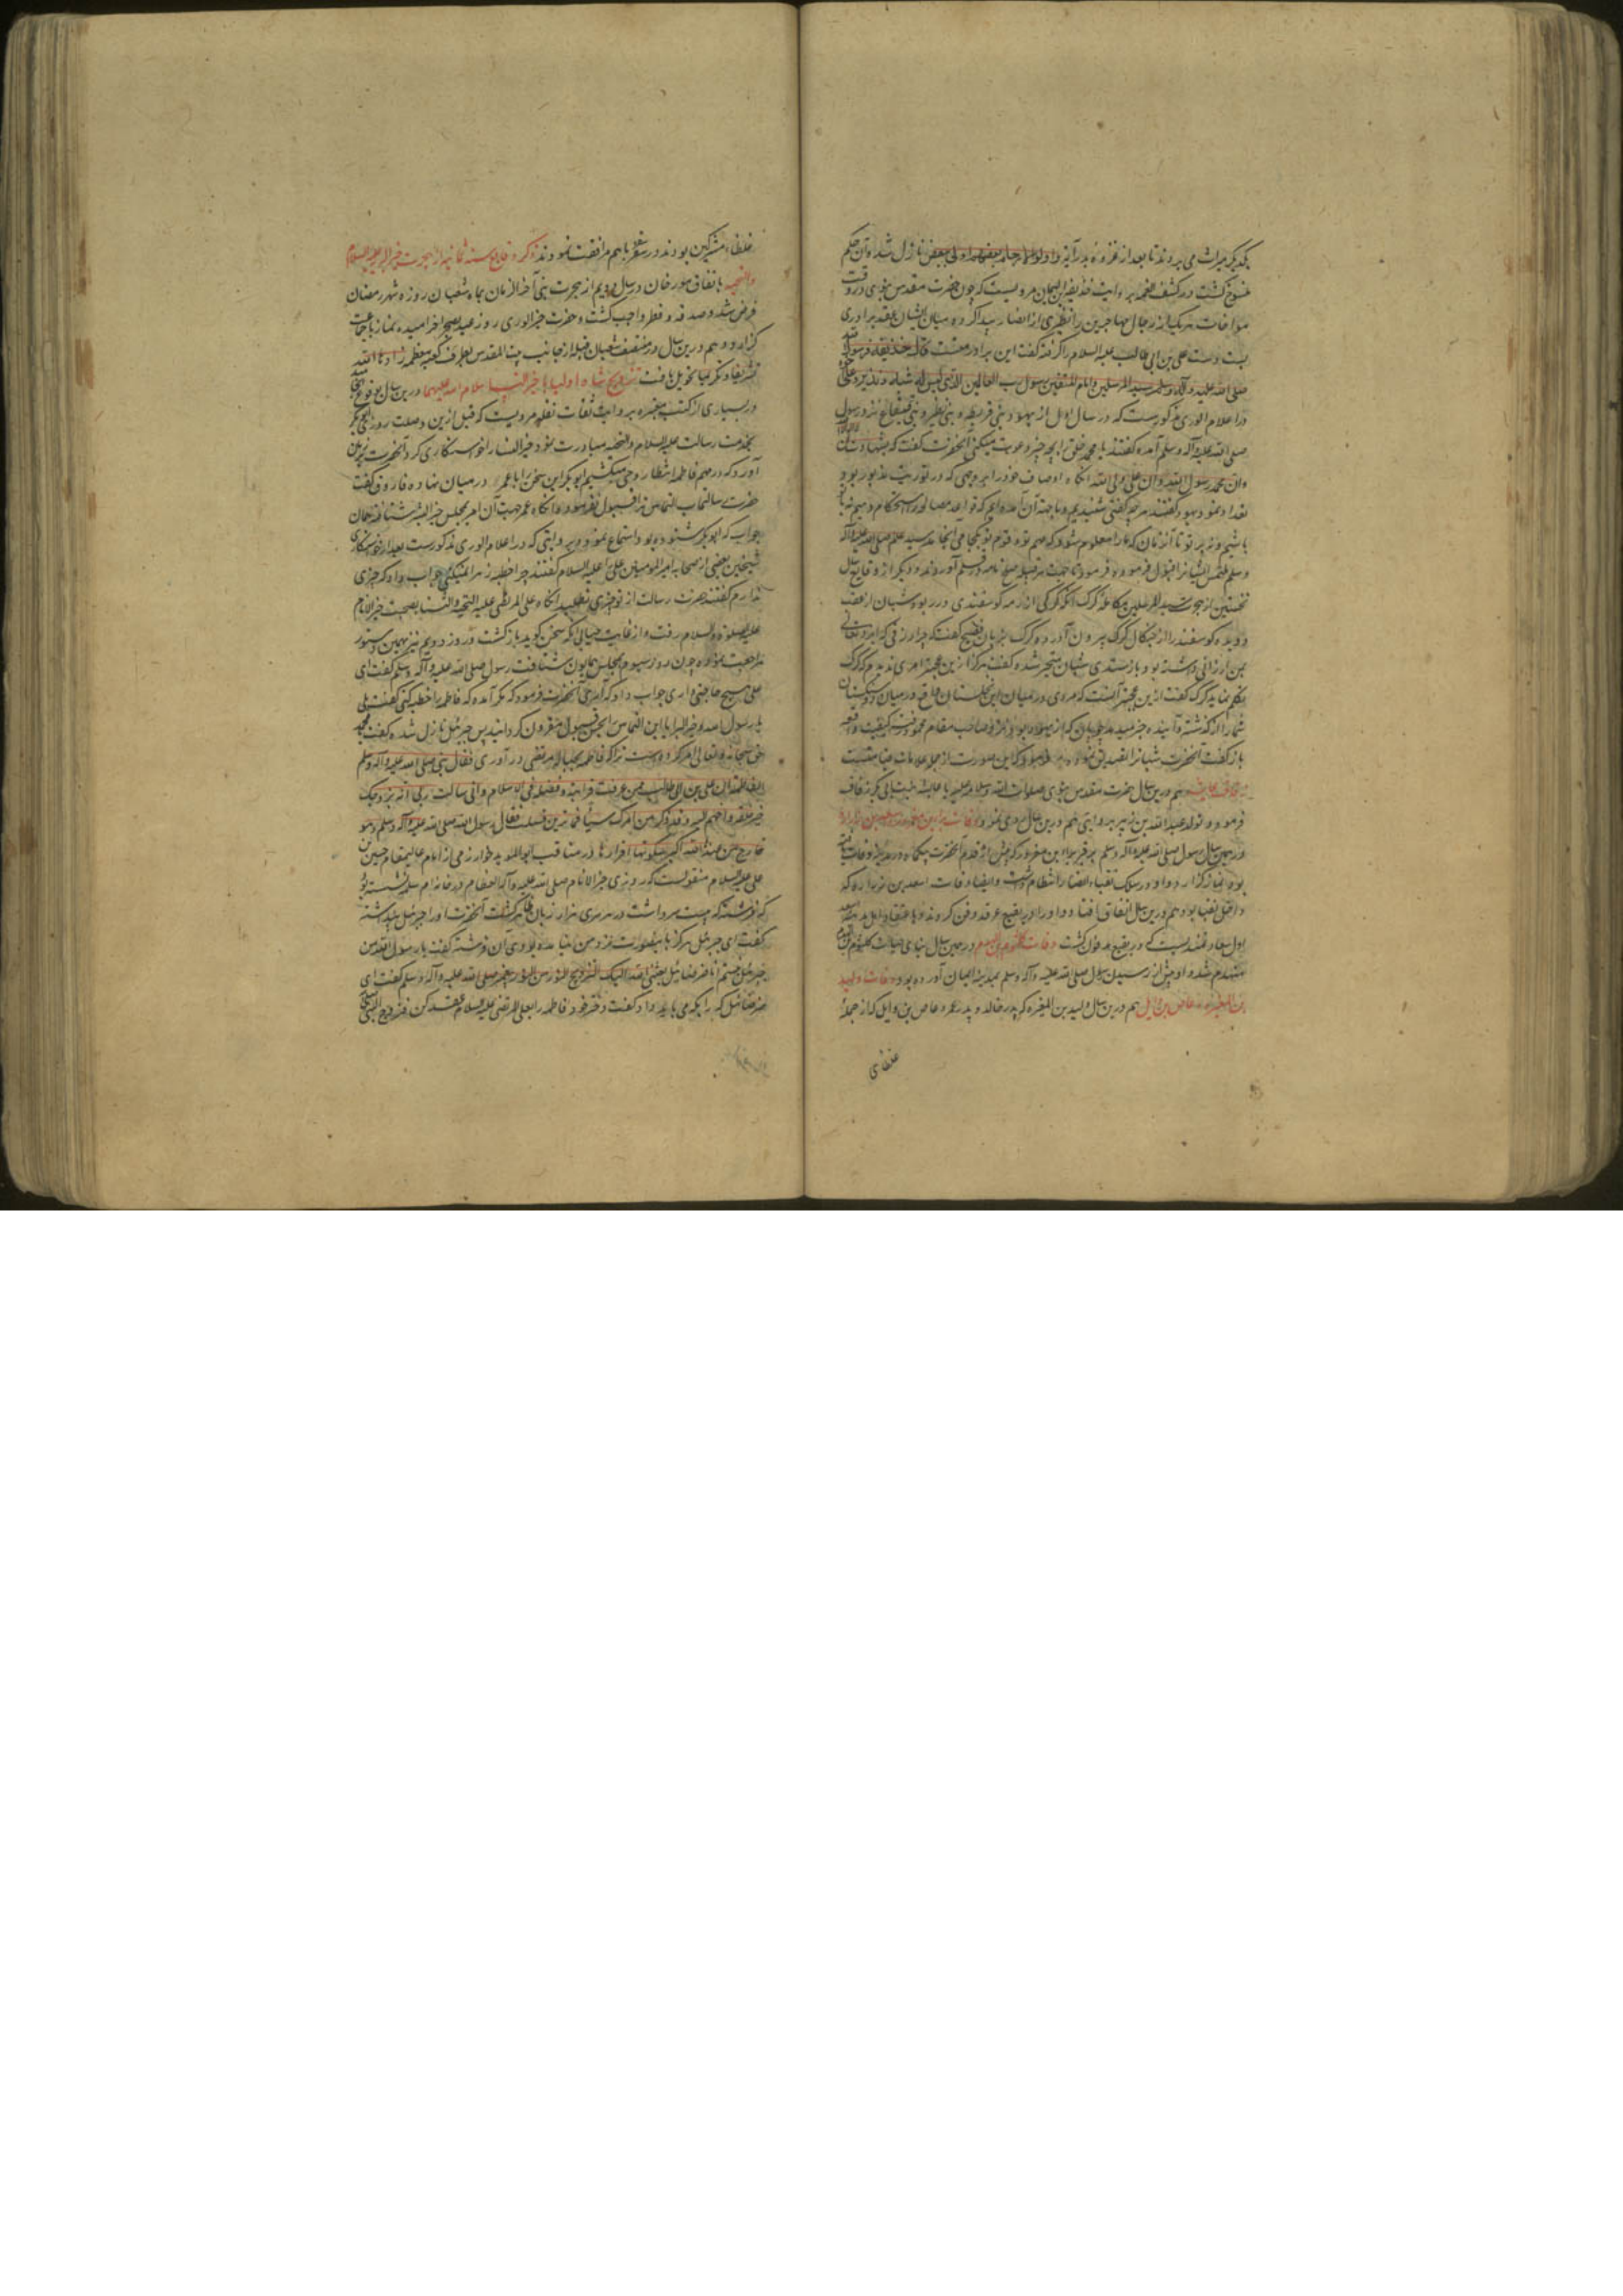 یکدیگر میراث می بردند تا بعد از غزوه بدر آیه و اولوا الارحام بعضهم اولی ببعض نازل شده آن حکم
منسوخ گشت در کشف الغمه بروایت حذیفه بن الیمان مرویست که چون حضرت مقدس نبوی در وقت
مواخات هر یک از رجال مهاجرین را نظیری از انصار پیدا کرده میان ایشان عقد برادری
بست دست علی بن ابی طالب علیه السلام را گرفته گفت این برادر منست قال حذیفه فرسول الله
صلی الله علیه وآله وسلم سید المرسلین وامام المتقین ورسول رب العالمین الذی لیس له شبیه ونذیر وعلی اخوه
در اعلام الوری مذکورست که در سال اول از یهود بنی قریظه و بنی نظیر و بنی قینقاع نزد رسول
صلی الله علیه وآله وسلم آمده گفتند یا محمد خلق را بچه چیز دعوت میکنی آنحضرت گفت که بشهادت ان لا اله الا الله
وان محمد رسول الله وان علی ولی الله آنگاه اوصاف خود را بر وجهی که در توریت مذبور بود
تعداد نمود یهود گفتند هر چه گفتی شنیدیم و ما جهة آن آمده ایم که قواعد مصالحه را استحکام دهیم نه با تو
باشیم و نه بر تو تا آن زمان که ما را معلوم شود که مهم تو و قوم تو بکجا می انجامد سید عالم صلی الله علیه وآله
وسلم ملتمس ایشانرا قبول فرمود و فرمود تا جهت هر قبیله صلح نامه در قلم آوردند و دیگر از وقایع سال
نخستین از هجرت سید المرسلین مکالمه گرگ است که گرگی از رمه گوسفندی در ربود و شبان از عقب
دویده گوسفند را از چنگال گرگ بیرون آورد و گرگ بزبان فصیح گفت که چرا رزقی که ایزد تعالی
بمن ارزانی داشته بود باز ستدی شبان متحیر شده گفت هرگز ازین عجبتر امری ندیدم که گرگ
تکلم نماید گرگ گفت ازین عجبتر آنست که مردی در میان این نخلستان واقع در میان دو سنگستان
شما را از گذشته و آینده خبر میدهد چوپان که از یهود بود نزد صاحب مقام محمود رفت کیفیت واقعه
باز گفت آنحضرت شبانرا تصدیق نمود و فرمود که این صورت از جمله علامات قیامتست
زفاف عایشه هم درین سال حضرت مقدس نبوی صلوات الله وسلامه علیه با عایشه بنت ابی بکر زفاف
فرمود و تولد عبدالله بن زبیر بروایتی هم درین سال روی نمود وفات براء بن معرور و اسعد بن زراره
در همین سال رسول صلی الله علیه وآله وسلم بر قبر براء ابن معرور که پیش از قدوم آنحضرت بیکماه در مدینه وفات یافته
بود نماز گزارد و او در سلک نقباء انصار انتظام داشت و ایضا وفات اسعد بن زراره که
داخل نقبا بود هم درین سال اتفاق افتاد و او را در بقیع غرقد دفن کردند و باعتقاد اهل مدینه اسعد
اول سعادتمندیست که در بقیع مدفون گشت وفات کلثوم بن الهدم در همین سال بنای حیات کلثوم بن الهدم
منهدم شد و او پیش از رسیدن رسول صلی الله علیه وآله وسلم بمدینه ایمان آورده بود وفات ولید
بن المغیره و عاص بن وایل هم درین سال ولید بن المغیره که پدر خالد و پدر عمرو عاص بن وایل که از جملهٔ
عظمای
عظماء مشرکین بودند در سفر با هم مرافقت نمودند ذکر وقایع سنه ثانیه از هجرت خیر البریه علیه السلام
والتحیه باتفاق مورخان در سال دویم از هجرت نبی آخر الزمان بماه شعبان روزه شهر رمضان
فرض شد و صدقه فطر واجب گشت و حضرت خیر الوری روز عید بصحرا خرامیده نماز با جماعت
گزارد و هم درین سال در منتصف شعبان قبله از جانب بیت المقدس بطرف کعبه معظمه زادها الله
تشریفا وتکریما تحویل یافت تزویج شاه اولیا با خیر النسا سلام الله علیهما درین سال بوقوع انجامید
در بسیاری از کتب معتبره بروایت ثقات نقله مرویست که قبل ازین وصلت روزی ابوبکر
بخدمت رسالت علیه السلام والتحیه مبادرت نمود خیر النساء را خواستگاری کرد آنحضرت بر زبان
آورد که در مهم فاطمه انتظار وحی میکشیم ابوبکر این سخن را با عمر در میان نهاده فاروق گفت
حضرت رسالتمآب التماس ترا قبول نفرمود و آنگاه عمر جهت آن امر بمجلس خیر البشر شتافته همان
جواب که ابوبکر شنوده بود استماع نمود و بروایتی که در اعلام الوری مذکورست بعد از خواستگاری
شیخین بعضی از صحابه امیر المومنین علی علیه السلام گفتند چرا خطبه زهرا نمیکنی جواب داد که چیزی
ندارم گفتند حضرت رسالت از تو چیزی نطلبد آنگاه علی المرتضی علیه التحیه والثنا بصحبت خیر الانام
علیه الصلوة والسلام رفت و از غایت حیا بی آنکه سخن گوید بازگشت و روز دویم نیز بهمین دستور
مراجعت نموده چون روز سیوم بمجلس همایون شتافت رسول صلی الله علیه وآله وسلم گفت ای
علی هیچ حاجتی داری جواب داد که آری آنحضرت فرمود که مگر آمده که فاطمه را خطبه کنی گفت بلی
یا رسول الله و خیر البرایا این التماس را بحسن قبول مقرون گردانید پس جبرئیل نازل شده گفت یا محمد
حق سبحانه وتعالی امر کرده است ترا که فاطمه را بحباله مرتضی در آوری فقال نبی صلی الله علیه وآله وسلم
لفاطمة ان علی بن ابی طالب ممن عرفت قرابته وفضله فی الاسلام وانی سالت ربی ان یزوجک
خیر خلقه واحبهم الیه وقد ذکر من امرک شیئا فما ترین فسکتت فقال رسول الله صلی الله علیه وآله وسلم وهو
خارج من عندها الله اکبر سکوتها اقرارها در مناقب ابوالموید خوارزمی از امام عالیمقام حسین بن
علی علیه السلام منقولست که روزی خیر الانام صلی الله علیه وآله العظام در خانه ام سلمه نشسته بود
که فرشته که بیست سر داشت در هر سری هزار زبان ظاهر گشت آنحضرت او را جبرئیل پنداشته
گفت ای جبرئیل هرگز باین صورت نزد من نیامده بودی آن فرشته گفت یا رسول الله من
جبرئیل نیستم انا صرصائیل بعثنی الله الیک لتزوج النور من النور پیغمبر صلی الله علیه وآله وسلم گفت ای
صرصائیل که را بکه می باید داد گفت دختر خود فاطمه را بعلی المرتضی علیه السلام عقد کن فزوج النبی صلی